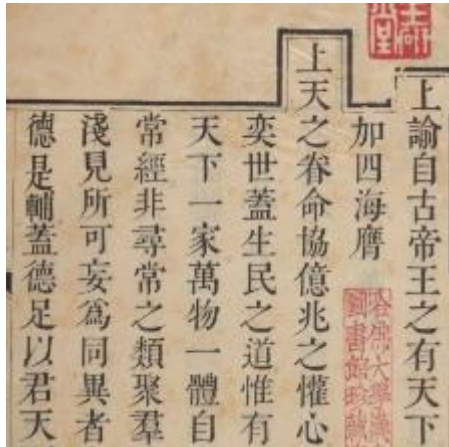 上諭自古帝王之有天下
加四海膺
上天之眷命協億兆之懽心
奕世蓋生民之道惟有
天下一家萬物一體自
常經非尋常之類聚羣
淺見所可妄為同異者
德是輔蓋德足以君天